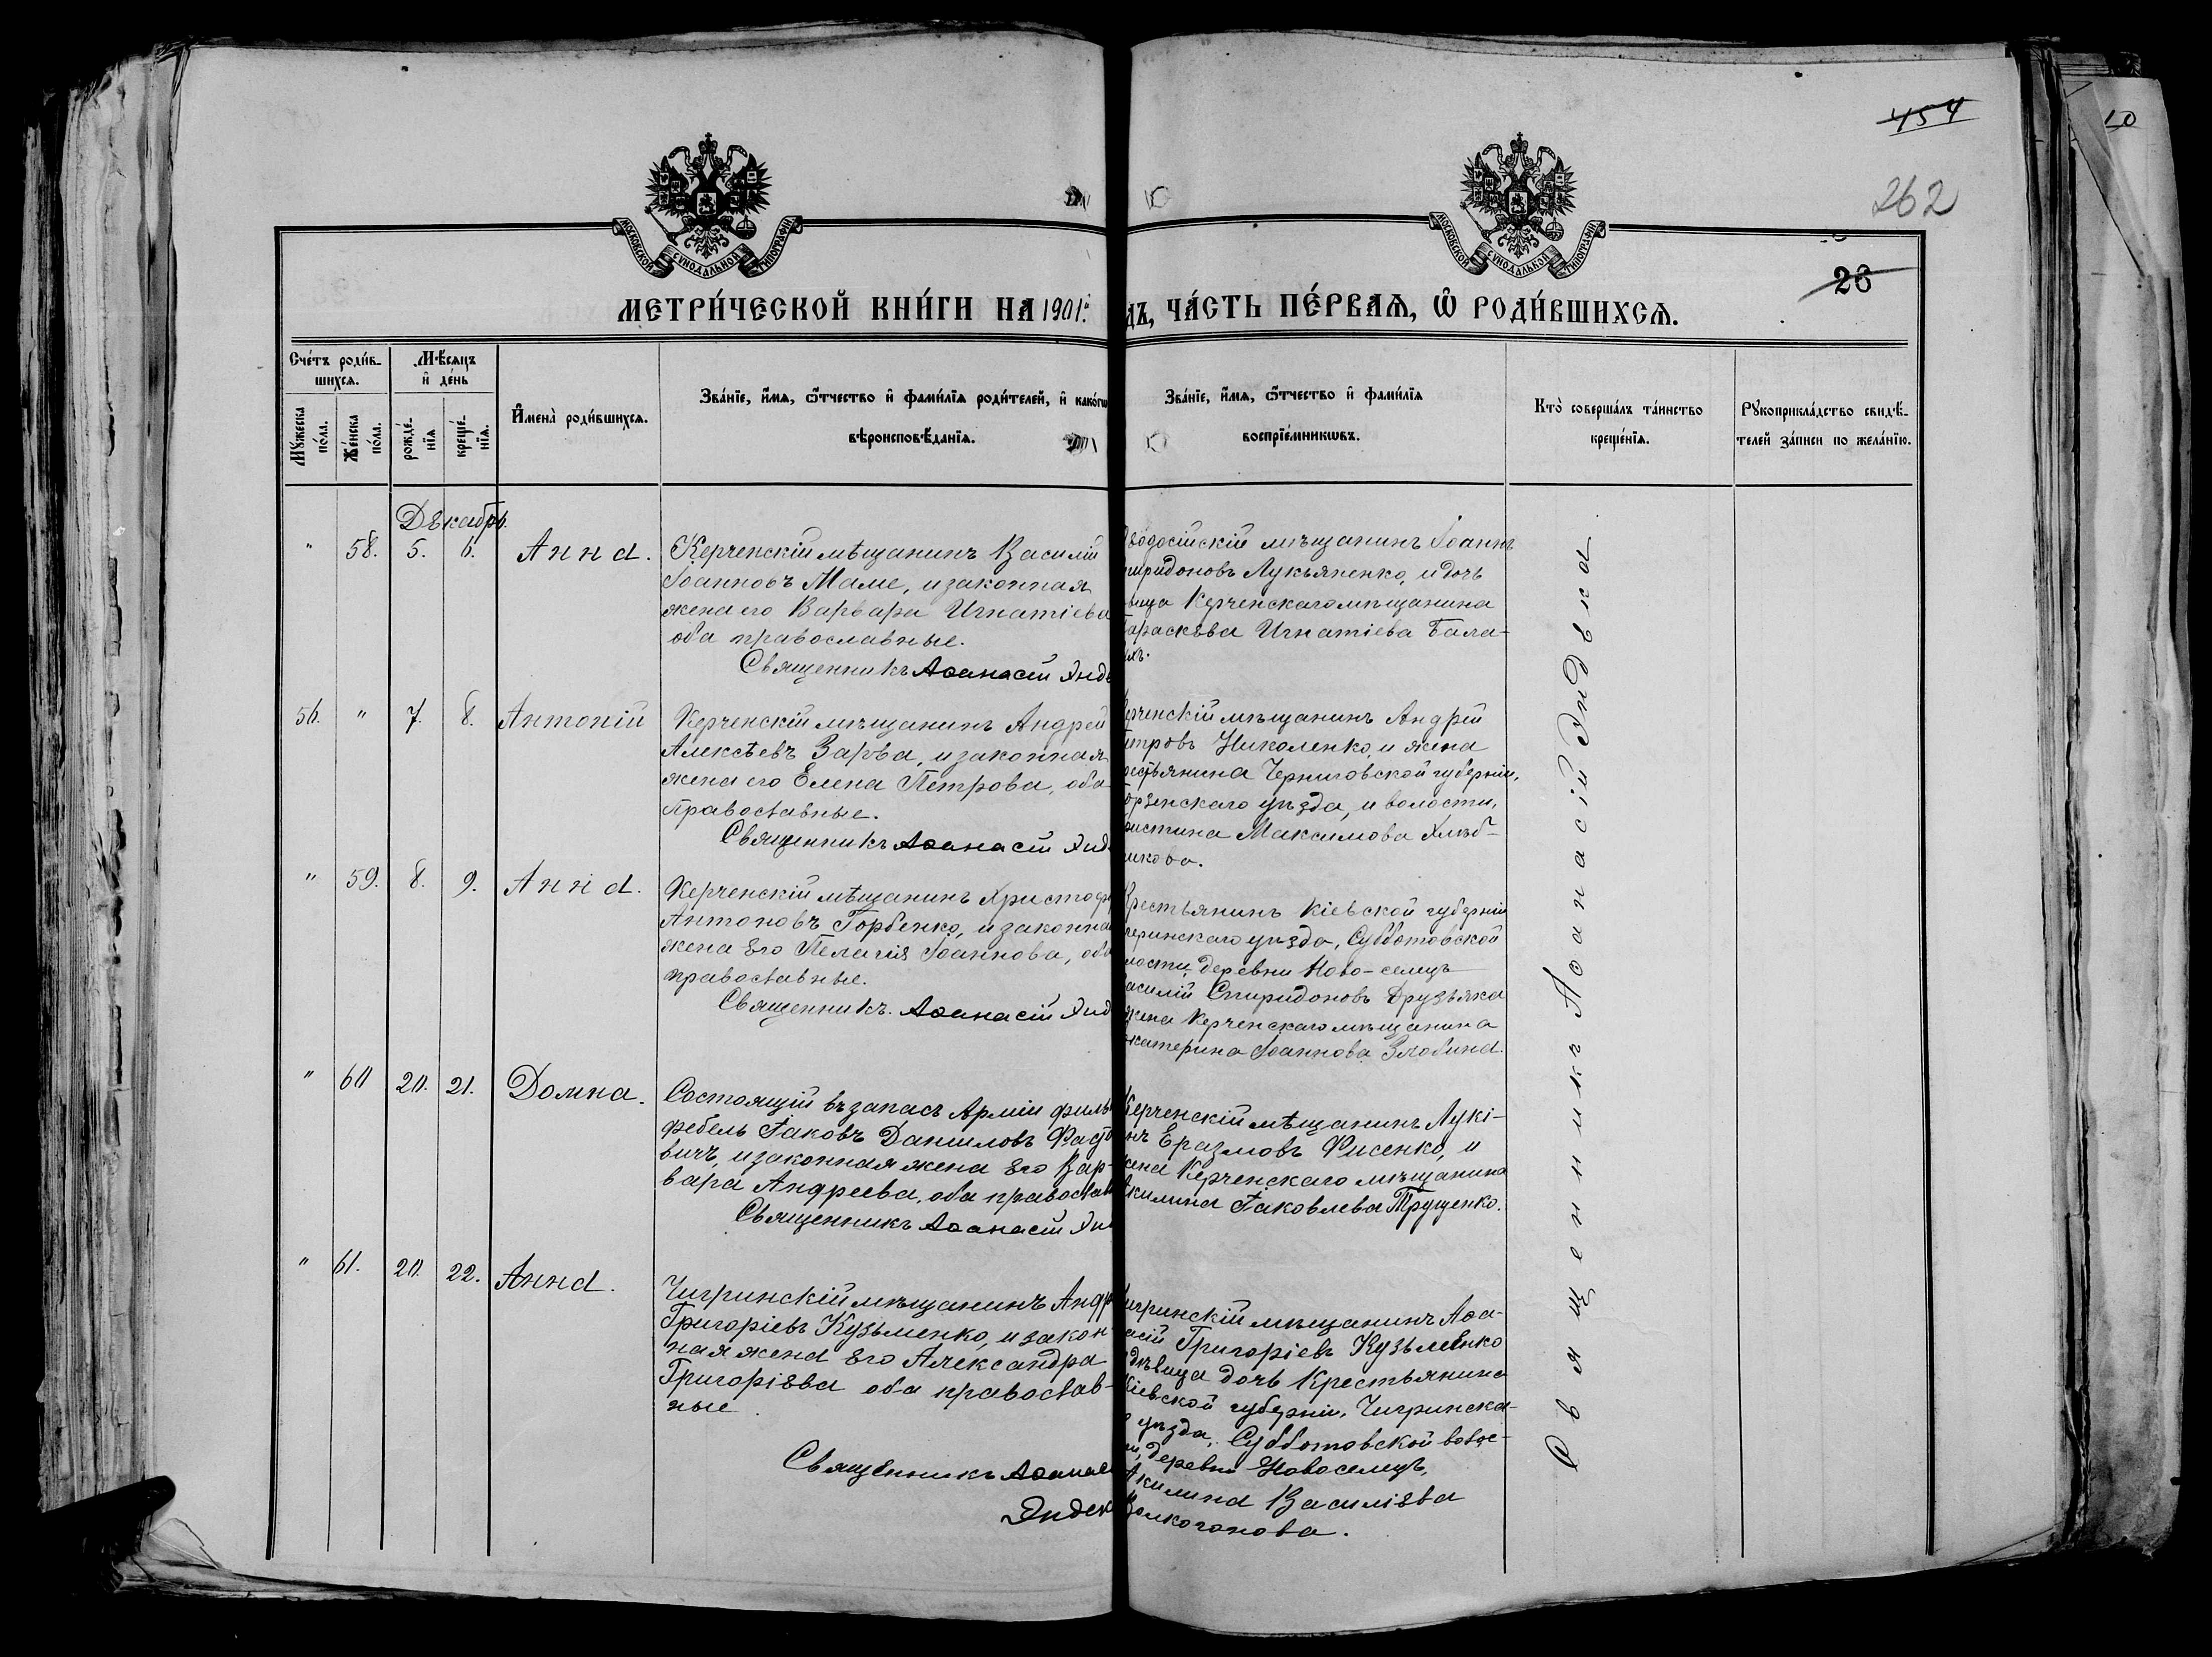 454
10
262
26
МОСКОВСКОЙ СѴНОДАЛЬНОЙ ТИПОГРАФІИ
МОСКОВСКОЙ СѴНОДАЛЬНОЙ ТИПОГРАФІИ
МЕТРИ́ЧЕСКОЙ КНИ́ГИ НА 1901й
ДЪ, ЧА́СТЬ ПЕ́РВАѦ, Ѡ҆ РОДИ́ВШИХСѦ.
Сче́тъ роди́в-
шихсѧ.
Мѣ́сѧцъ
и҆ де́нь
Мꙋ́жеска
по́ла.
Же́нска
по́ла.
рожде́-
нїѧ
креще́-
нїѧ.
И҆мена̀ роди́вшихсѧ.
Зва́нїе, и҆́мѧ, ѻ҆́тчество и҆ фами́лїѧ роди́телей, и҆ како́гѡ
вѣроисповѣ́данїѧ.
Зва́нїе, и҆́мѧ, ѻ҆́тчество и҆ фами́лїѧ
воспрїе́мникѡвъ.
Кто̀ соверша́лъ та́инство
креще́нїѧ.
Рꙋкоприкла́дство свидѣ́-
телей за́писи по жела́нїю.
Декабрь.
" 58. 5. 6. Анна.
Керченскій мѣщанинъ Василій
Іоанновъ Маме, и законная
жена его Варвара Игнатіева
оба православные.
Священникъ Аѳанасій Энд
одосійскій мѣщанинъ Іоаннъ
пиридоновъ Лукьяненко, и дочь
вица Керченскаго мѣщанина
араскева Игнатіева Бала-
56. " 7. 8. Антоній
Керченскій мѣщанинъ Андрей
Алексѣевъ Зарва, и законная
жена его Елена Петрова, оба
православные.
Священникъ Аѳанасій Энд
ерченскій мѣщанинъ Андрій
етровъ Николенко, и жена
рестьянина Черниговской губерніи,
орзенскаго уѣзда, и волости,
ристина Максимова Хлѣб-
никова.
" 59. 8. 9. Анна.
Керченскій мѣщанинъ Христоф
Антоновъ Горбенко, и законна
жена его Пелагія Іоаннова, оба
православные.
Священникъ. Аѳанасій Энд
Крестьянинъ Кіевской губерніи
геринскаго уѣзда, Субботовской
лости, деревни Ново-селецъ
асилій Спиридоновъ Друзьяка
жена Керченскаго мѣщанина
катерина Іоаннова Злобина.
" 60 20. 21. Домна.
Состоящій въ запасѣ Арміи фильд
фебель Іаковъ Даниловъ Фасто
вичъ, и законная жена его Вар-
вара Андреева, оба православ
Священникъ Аѳанасій Эн
Керченскій мѣщанинъ Лукі-
нъ Еразмовъ Фисенко, и
жена Керченскаго мѣщанина
Акилина Іаковлева Трущенко.
" 61. 20. 22. Анна.
Чигринскій мѣщанинъ Андр
Григоріевъ Кузьменко, и закон-
ная жена его Александра
Григоріева оба православ-
ные.
Священникъ Аѳанас
Эндек
игринскій мѣщанинъ Аѳа-
асій Григоріевъ Кузьменко
дѣвица дочь Крестьянина
Кіевской губерніи, Чигринска-
уѣзда, Субботовской волос-
и, деревни Новоселецъ,
Акилина Василіева
Волкогонова.
Священникъ Аѳанасій Эндека